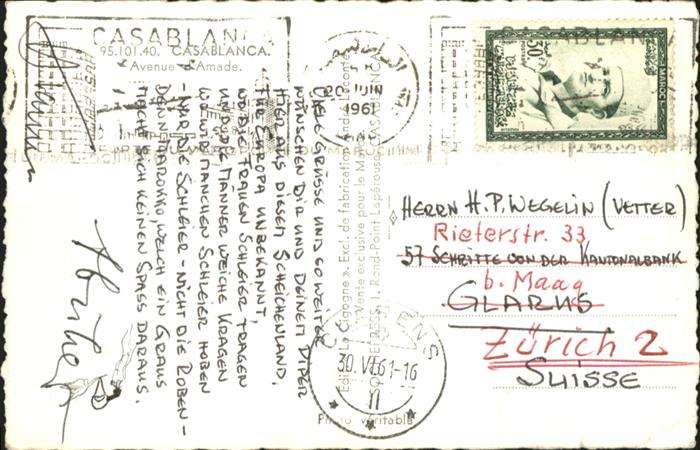 CASABLANCA
95.101.40. CASABLANCA.
Avenue Amade.
CASABLANCA
JUIN
1961
MAROC
30
VIELE GRÜSSE UND SO WEITER
WÜNSCHEN DIR UND DEINEM PIPER
HIER AUS DIESEM SCHEICHENLAND,
FÜR EUROPA UNBEKANNT,
WO DIE FRAUEN SCHLEIER TRAGEN
UND DIE MÄNNER WEICHE KRAGEN
WO WIR MANCHEN SCHLEIER HOBEN
- NUR DIE SCHLEIER - NICHT DIE ROBEN -
DENN MAROKKO WELCH EIN GRAUS
MACHE DICH KEINEN SPASS DARAUS.
Edit. La Cigogne. Excl. de fabrication André Leconte
Vente exclusive pour le Maroc
1, Rond-Point Lapérouse, CASABLANCA
HERRN H.P. WEGELIN (VETTER)
Rieterstr. 33
57 SCHRITTE VON DER KANTONALBANK
b. Maag
GLARUS
Zürich 2
SUISSE
30. VI. 61-16
Photo véritable